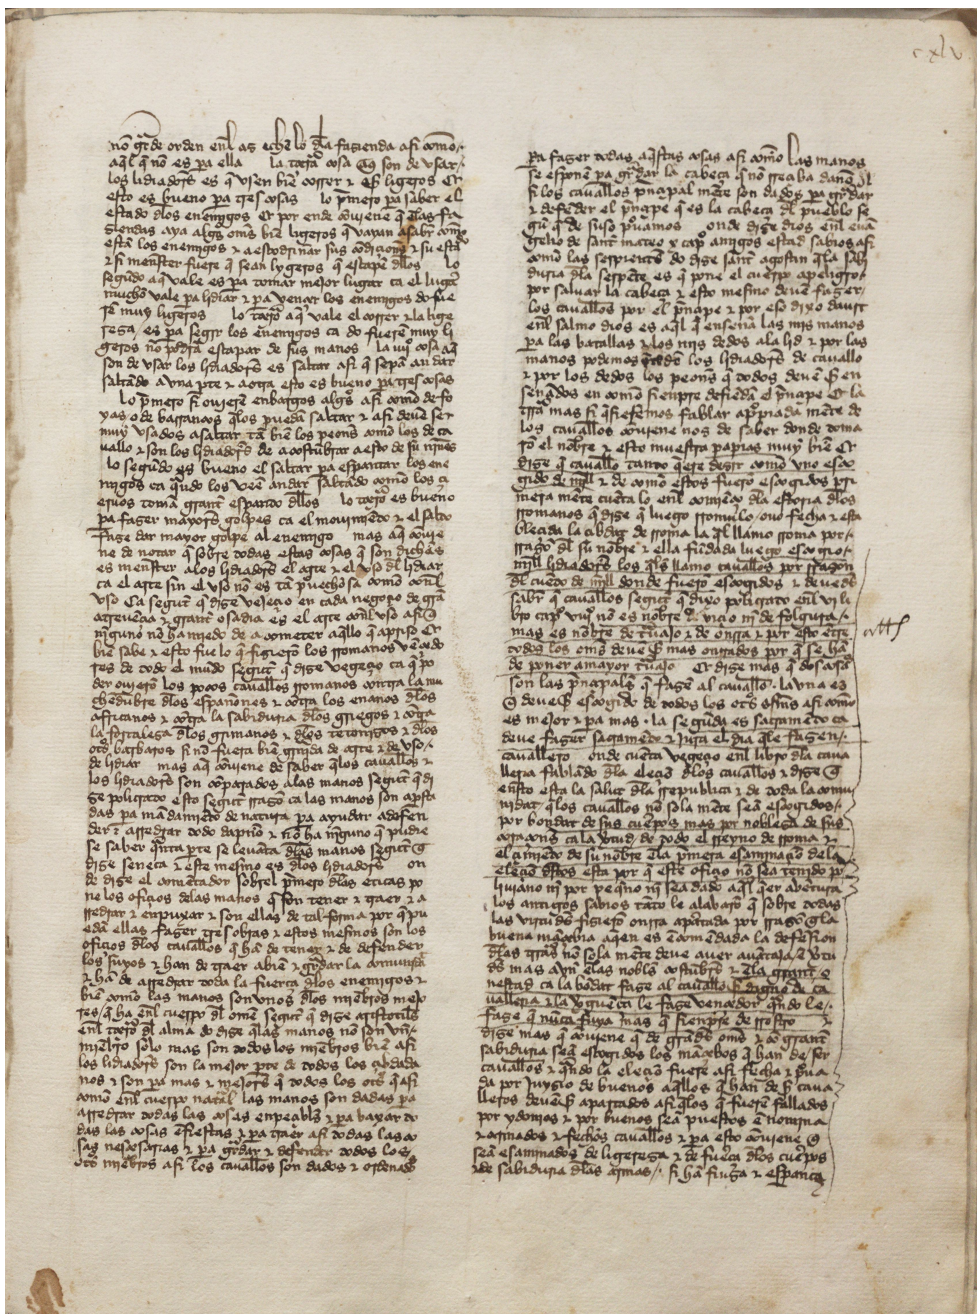 cxlv
nõ gr̃de orden enl as eche lo dla fazienda asi cõmo
aq̃l q̃ nõ es pa ella la cosa q̃ son de usar
los lidiadores es q̃ usen biẽ correr τ ligeros Et
esto es bueno pa tres cosas lo p̃mero pa saber el
estado dlos enemigos Et por ende cõviene q̃ elas fa
ziendas aya algũos omẽs biẽ ligeros q̃ vayan a sabr̃ cõmo
estã los enemigos τ a escodriñar sus cõdiciones τ su estado
τ si menester fuere q̃ sean lygeros q̃ escapẽ dllos lo
segũdo a q̃ vale es pa tomar mejor lugar ca el lugar
mucho vale pa lidiar τ pa vençer los enemigos do fue
rẽ muy ligeros lo t̃çero a q̃ vale el correr τ la lige
reza es pa segir los enemigos ca do fuerẽ muy li
geros nõ podrã escapar de sus manos la iiijª cosa a q̃
son de usar los lidiadores es saltar asi q̃ sepã andar
saltãdo a vna p̃te τ a otra esto es bueno pa tres cosas
lo p̃mero si ovierẽ enbargos algũos asi cõmo de fo
yas o de barrancos q̃ los puedã saltar τ asi devẽ ser
muy usados a saltar tã biẽ los peones cõmo los de ca
vallo τ son los lidiadores de acostũbrar a esto de su niñes
lo segũdo es bueno el saltar pa espantar los ene
migos ca q̃ndo los veẽ andar saltãdo cõmo los çi
ervos tomã grant espanto dllos lo t̃çero es bueno
pa fazer mayores golpes ca el movimiẽto τ el salto
faze dar mayor golpe al enemigo mas aq̃ cõvie
ne de notar q̃ sobre todas estas cosas q̃ son dichas
es menester a los lidiadores el arte τ el uso dl lidiar
ca el arte sin el uso nõ es tã p̃uechosa cõmo cõnl
uso Ca segunt q̃ dize vejeçio en cada negoçio de grã
atreuẽcia τ grant osadia es el arte cõnl uso asi q̃
ninguno nõ ha miedo de acometer aq̃llo q̃ apriso Et
biẽ sabe τ esto fue lo q̃ fizierõ los rromanos vẽçedo
res de todo el mũdo segunt q̃ dize vegeçio ca q̃ po
der ovierõ los pocos cavalleros rromanos contra la mu
chedũbre dlos españones τ cõtra los enanos dlos
africanos τ cõtra la sabiduria dlos griegos τ cõtra
la fortaleza dlos germanos τ dlos τ dlos
otros barbaros si nõ fuera biẽ de arte τ de uso
de lidiar mas aq̃ cõviene de saber q̃ los cavalleros τ
los lidiadores son cõparados a las manos segunt q̃ di
ze policrato esto segunt rrazõ ca las manos son apsta
das pa mãdamiẽto de natura pa ayudar a defen
der τ arredrar todo daño τ nõ ha ninguno q̃ pudie
se saber q̃nta p̃te se levãta dlas manos segunt q̃
dize seneca τ este mesmo es dlos lidiadores on
de dize el comẽtador sobrel p̃mero dlas eticas po
ne los ofiçios delas manos q̃ son tener τ traer τ a
rredrar τ enpuxar τ son ellas de tal forma por q̃ pu
edã ellas fazer tres obras τ estos mesmos son los
ofiçios dlos cavalleros q̃ hã de tener τ de defender
los suyos τ han de traer a biẽ τ gr̃dar la comunidat
τ hã de arredrar toda la fuerça dlos enemigos τ
biẽ cõmo las manos son unos dlos miẽbros mejo
res q̃ ha enl cuerpo dl omẽ segunt q̃ dize aristotiles
enl t̃çero dl alma do dize q̃ las manos nõ son vn
miẽbro solo mas son todos los miẽbros biẽ asi
los lidiadores son la mejor p̃te de todos los çibdada
nos τ son pa mas τ mejores q̃ todos los otros q̃ asi
cõmo enl cuerpo naturl las manos son dadas pa
arredrar todas las cosas enpeçables τ pa baxar to
das las cosas ẽfiestas τ pa traer asi todas las co
sas neçesarias τ pa gr̃dar τ defender todos los
otros miẽbros asi los cavalleros son dados τ ordenados
pa fazer todas aq̃stas cosas asi cõmo las manos
se esponẽ pa gr̃dar la cabeça q̃ nõ rreçiba daño
si los cavalleros p̃nçipal mẽte son dados pa gr̃dar
τ defẽder el p̃nçipe q̃ es la cabeça dl pueblo se
gũ q̃ de suso p̃uamos onde dize dios enl evã
gelio de sant mateo x cap̃º amigos estad sabios asi
cõmo las serpientes do dize sant agostin q̃ la sabi
duria dla serpiẽte es q̃ pone el cuerpo a peligro
por salvar la cabeça τ esto mesmo devẽ fazer
los cavalleros por el p̃nçipe τ por eso dixo davit
enl salmo dios es aq̃l q̃ enseña las mis manos
pa las batallas τ los mis dedos a la lid τ por las
manos podemos los lidiadores de cavallo
τ por los dedos los peones q̃ todos devẽ sr̃ en
señados en cõmo siẽpre defiendã el p̃nçipe Et la
trra mas si q̃sieremos fablar ap̃piada mẽte de
los cavalleros cõviene nos de saber donde toma
rõ el nõbre τ esto muestra papias muy biẽ Et
dize q̃ cavallero tanto q̃ere dezir cõmo uno esco
gido de mjll τ de cõmo estos fuerõ escogidos pri
mera mẽte cuẽta lo enl comiẽço dla estoria dlos
rromanos q̃ dize q̃ luego rromulo ovo fecha τ esta
bleçida la çibdat de rroma la q̃l llamo rroma por
rrazõ dl su nõbre τ ella fũdada luego escogio
mjll lidiadores los q̃les llamo cavalleros por rrazon
dl cuẽto de mjll donde fuerõ escogidos τ devedes
sabr̃ q̃ cavalleros segunt q̃ dixo policrato enl vi li
bro cap̃º viijº nõ es nõbre de viçio nj de folgura
mas es nõbre de t̃bajo τ de onrra τ por esto etre
todos los omẽs devẽ sr̃ mas onrrados por q̃ se hã
de poner a mayor t̃bajo Et dize mas q̃ dos cosas
son las p̃nçipales q̃ fazẽ al cavallero la una es
q̃ deve sr̃ escogido de todos los otros omẽs asi cõmo
es mejor τ pa mas la segũda es sacramẽto ca
deve fazer sacramẽto τ jura el dia q̃ le fazen
cavallero onde cuẽta vegeçio enl libro dla cava
lleria fablãdo dla eleçiõ dlos cavalleros τ dize q̃
en esto esta la salut dla rrepublica τ de toda la comu
nidat q̃ los cavalleros nõ sola mẽte seã escogidos
por bondat de sus cuerpos mas por nobleza de sus
coraçones ca la v̓tud de todo el rreyno de rroma τ
el çimiẽto de su nõbre ẽ la p̃mera esaminaçõ de la
eleçiõ dstos esta por q̃ este ofiçio nõ sea tenido por
liviano nj por peq̃ño nj sea dado a q̃l q̃er avẽtura
los antigos sabios tãto le alabarõ q̃ sobre todas
las virtudes fizierõ onrra apartada por rrazõ q̃ la
buena mãçebia a q̃en es ẽcomẽdada la defẽsion
dlas trras nõ sola mẽte deve aver avãtaja ẽ v̓tu
des mas avn ẽ las nobles costũbres τ ẽ la grant o
nestad ca la bõdat faze al cavallero sr̃ digno de ca
valleria τ la v̓guẽça le faze vençedor q̃ndo le
faze q̃ nũca fuya mas q̃ siẽpre de rrostro τ
dize mas q̃ cõviene q̃ de grãdes omẽs τ cõ grant
sabiduria seã escogidos los mãçebos q̃ han de ser
cavalleros τ q̃ndo la eleçiõ fuere asi fecha τ gia
da por juyzio de buenos aq̃llos q̃ han de sr̃ cava
lleros devẽ sr̃ apartados asi q̃ los q̃ fuerẽ fallados
por ydoneos τ por buenos seã puestos ẽ nomina
τ armados τ fechos cavalleros τ pa esto cõviene q̃
seã esaminados de ligereza τ de fuerça dlos cuerpos
τ de sabiduria dlas armas si hã fiuza τ esperança